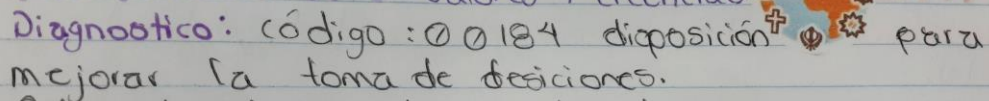 Diagnostico: código: 00184 disposición para
mejorar la toma de desiciones.